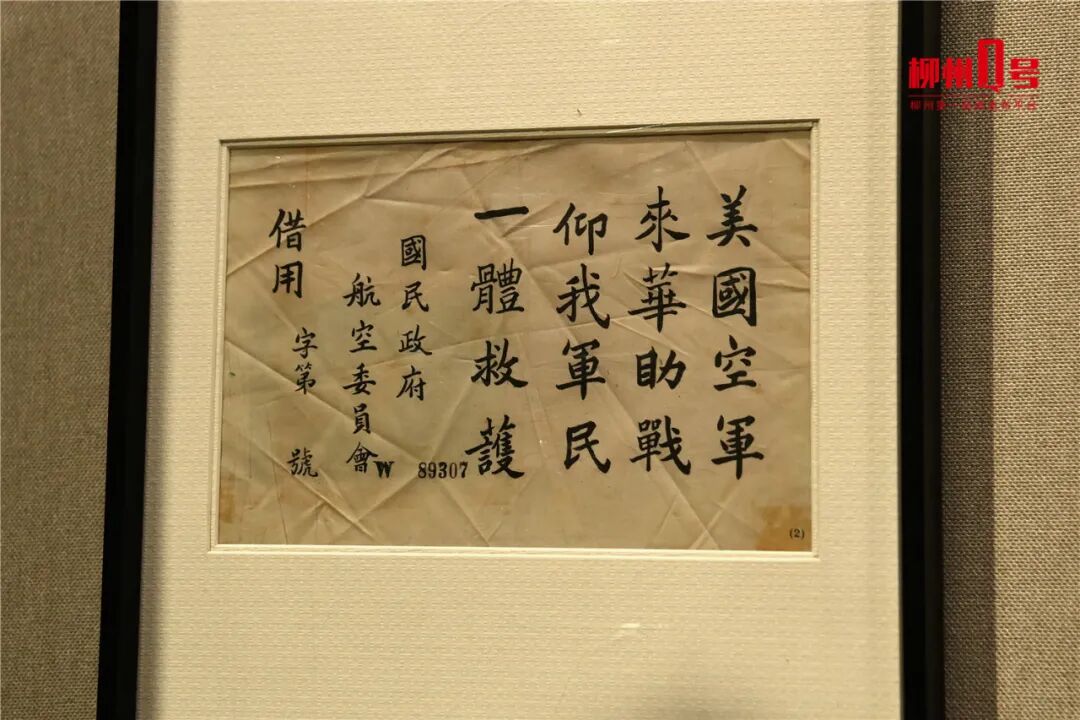 美國空軍
來華助戰
仰我軍民
一體救護
國民政府
航空委員會
借用 字第 號
W 89307
(2)
柳州1号